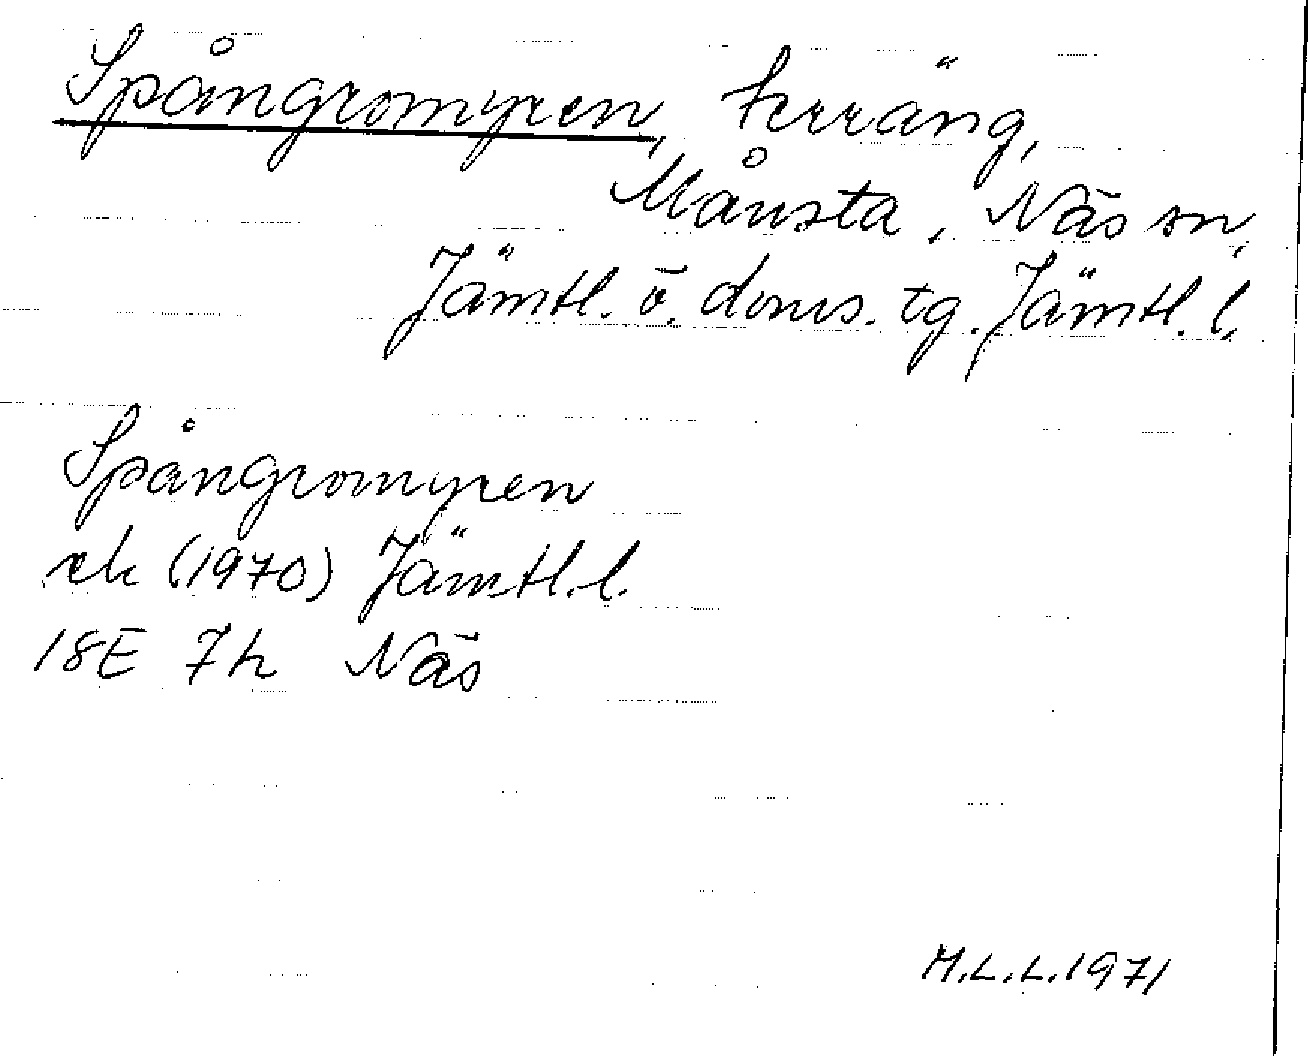 Spångromyren, terräng,
Månsta, Näs sn,
Jämtl. ö. doms. tg. Jämtl. l.
Spångromyren
rk (1970) Jämtl. l.
18E 7h Näs
M.L.L. 1971